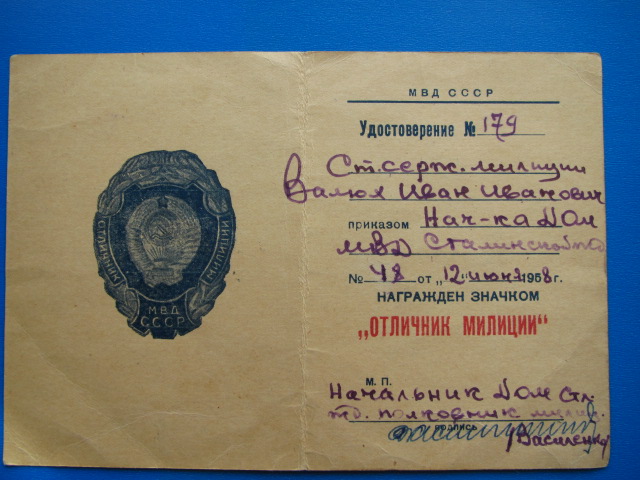 ОТЛИЧНИК МИЛИЦИИ
МВД
СССР
МВД СССР
Удостоверение № 179
Ст. серж. милиции
Иван Иванович
приказом Нач-ка
МВД Сталинской
№ 48 от „12" июня 1958 г.
НАГРАЖДЕН ЗНАЧКОМ
„ОТЛИЧНИК МИЛИЦИИ"
М. П.
Начальник
полковник милиц.
подпись
/Василенко/